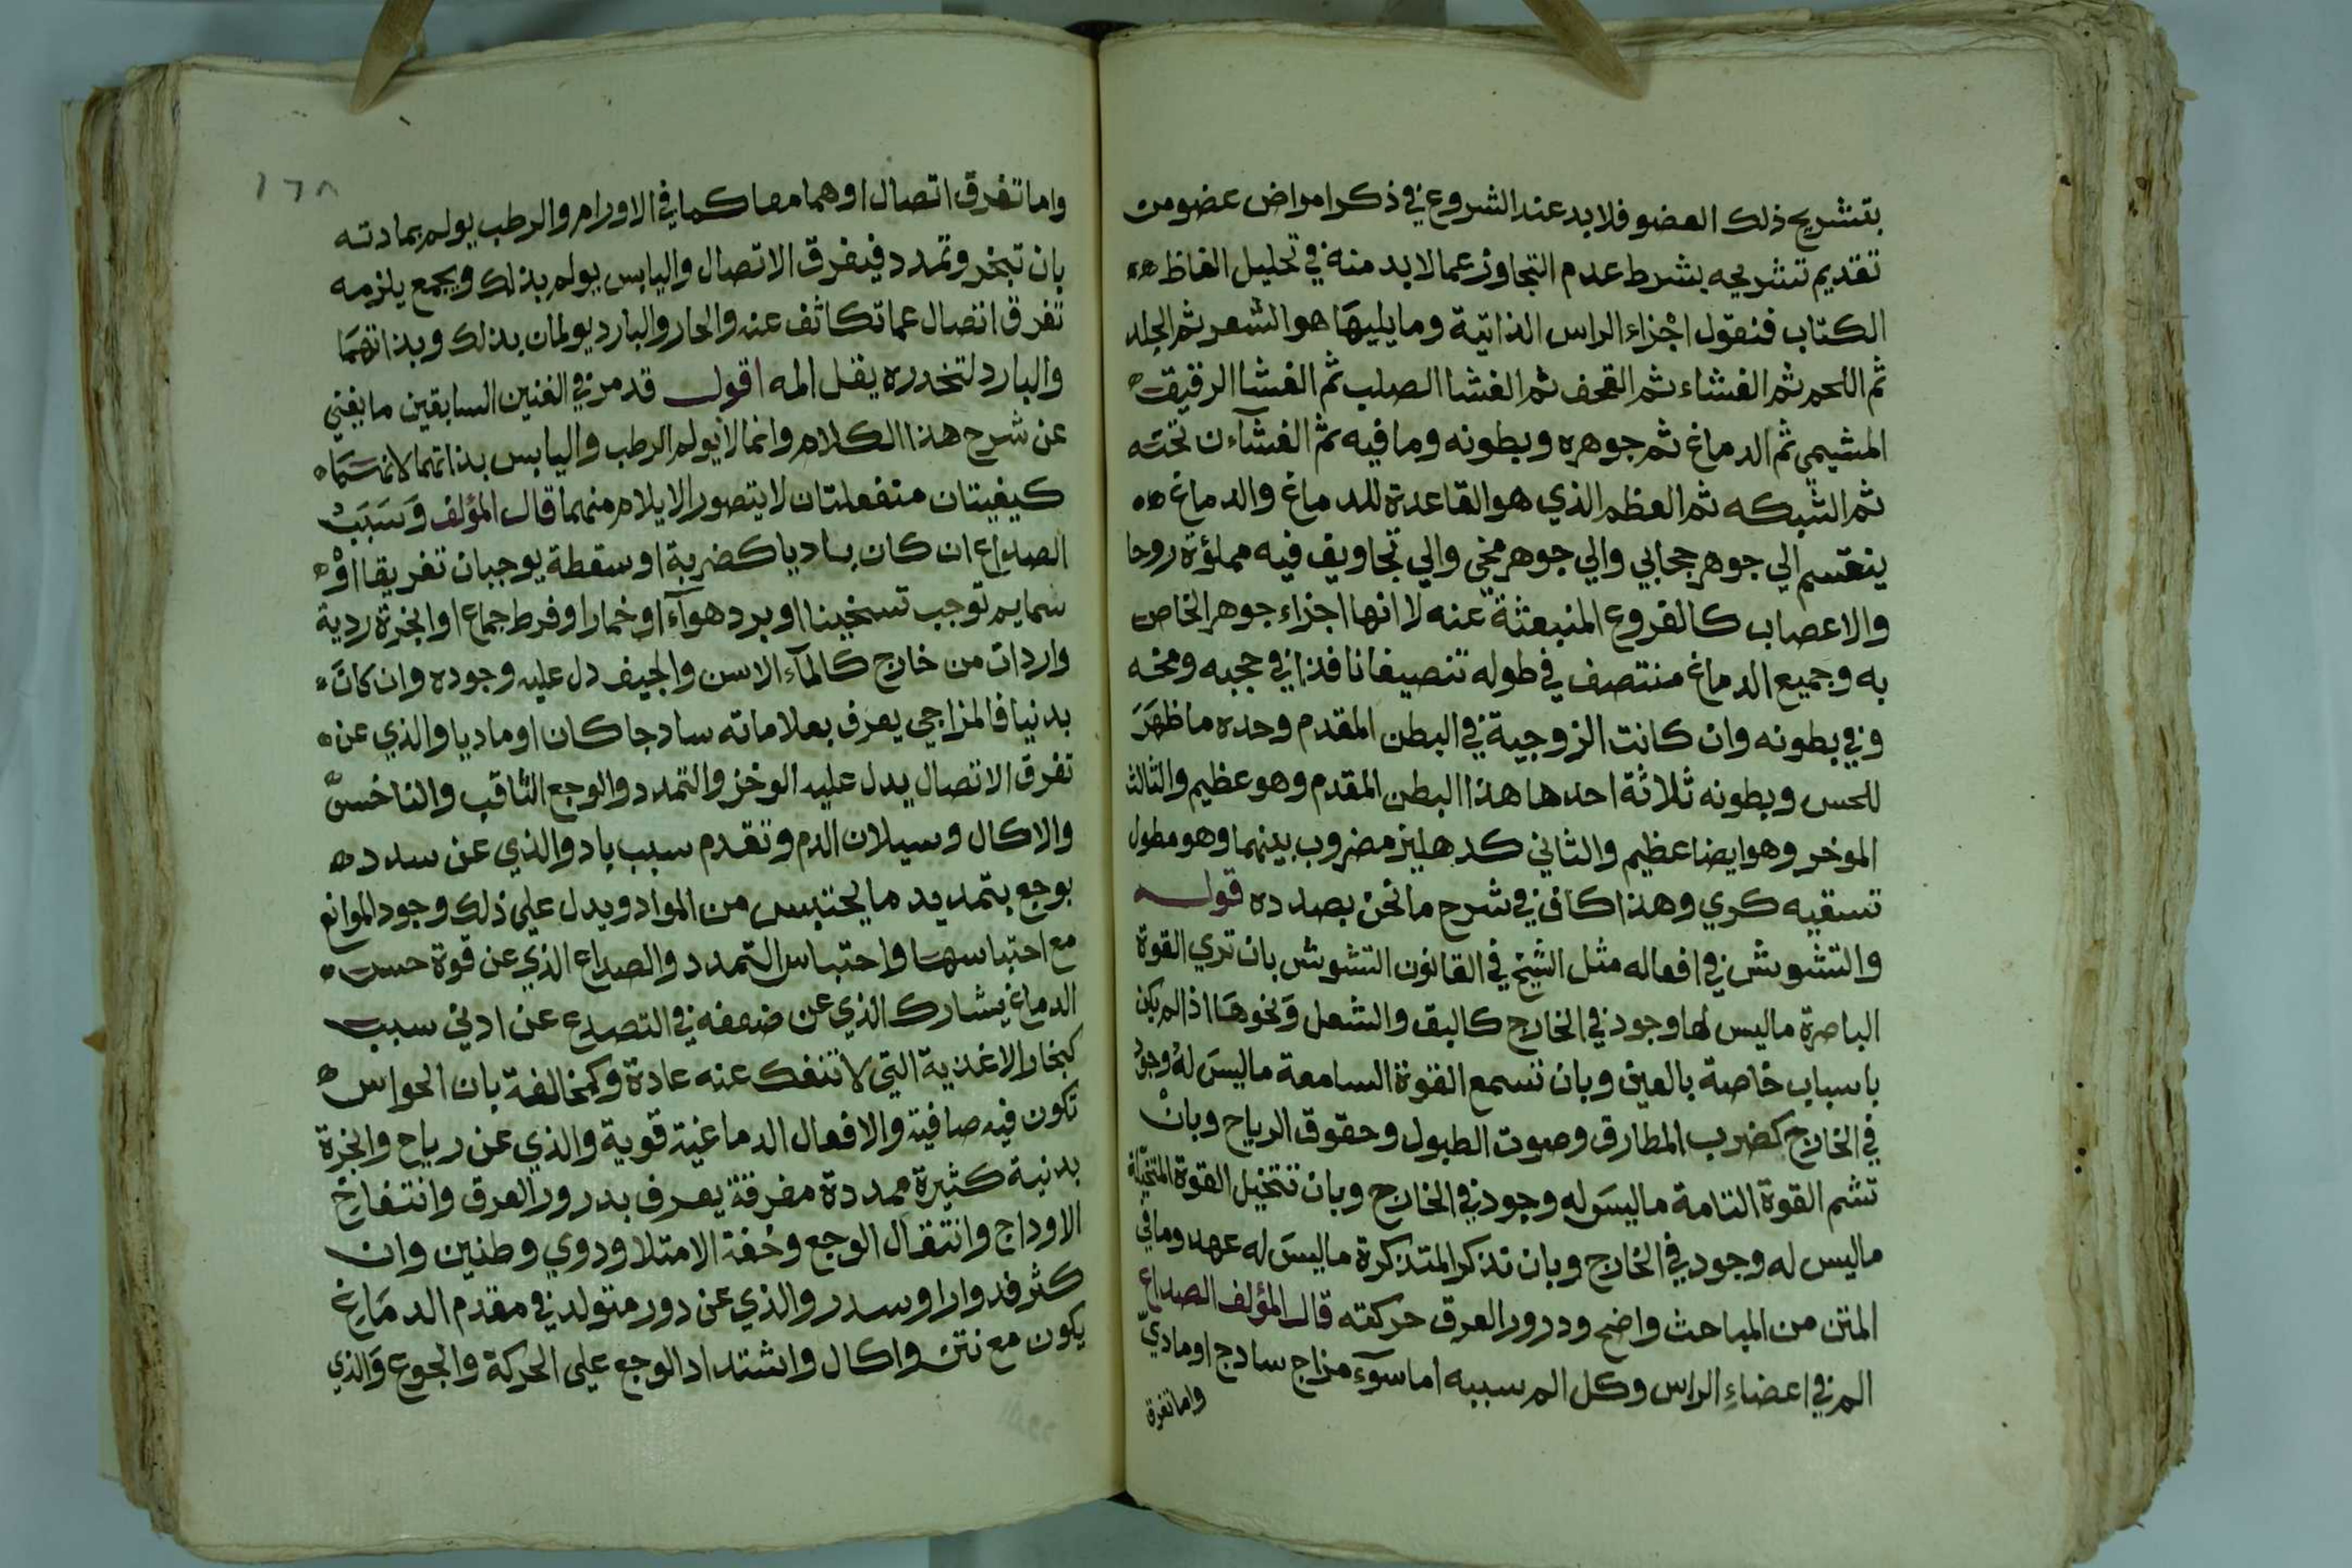 بتشريح ذلك العضو فلا بد عند الشروع في ذكر امراض عضو من
تقديم تشريحه بشرط عدم التجاوز عما لا بد منه في تحليل الفاظ
الكتاب فنقول اجزاء الراس الذاتية وما يليها هو الشعر ثم الجلد
ثم اللحم ثم الغشاء ثم القحف ثم الغشا الصلب ثم الغشا الرقيق
المشيمي ثم الدماغ ثم جوهره وبطونه وما فيه ثم الغشآءن تحته
ثم الشبكه ثم العظم الذي هو القاعدة للدماغ والدماغ
ينقسم الي جوهر حجابي والي جوهر مخي والي تجاويف فيه مملؤة روحا
والاعصاب كالفروع المنبعثة عنه لا انها اجزاء جوهر الخاص
به وجميع الدماغ منتصف في طوله تنصيفا نافذا في حجبه ومخه
وفي بطونه وان كانت الزوجية في البطن المقدم وحده ما ظهر
للحس وبطونه ثلاثة احدها هذا البطن المقدم وهو عظيم والثالث
الموخر وهو ايضا عظيم والثاني كدهليز مضروب بينهما وهو مطول
تسقيه كري وهذا كاف في شرح ما نحن بصدده قوله
والتشويش في افعاله مثل الشيخ في القانون التشوش بان تري القوة
الباصرة ما ليس لها وجود في الخارج كالبق والشعل ونحوها اذا لم يكن
باسباب خاصة بالعين وبان تسمع القوة السامعة ما ليس له وجود
في الخارج كضرب المطارق وصوت الطبول وحقوق الرياح وبان
تشم القوة الشامة ما ليس له وجود في الخارج وبان تتخيل القوة المتخيلة
ما ليس له وجود في الخارج وبان تذكر المتذكرة ما ليس له عهد وما في
المتن من المباحث واضح ودرور العرق حركته قال المؤلف الصداع
الم في اعضاء الراس وكل الم سببه اما سوء مزاج سادج او مادي
واما تفرق
١٦٨
واما تفرق اتصال او هما معا كما في الاورام والرطب يولم بمادته
بان تبخر وتمدد فيفرق الاتصال واليابس يولم بذلك ويجمع يلزمه
تفرق اتصال عما تكاثف عنه والحار والبارد يولمان بذلك وبذاتهما
والبارد لتخدره يقل المه اقول قد مر في الفنين السابقين ما يغني
عن شرح هذا الكلام وانما لا يولم الرطب واليابس بذاتهما لانهما
كيفيتان منفعلتان لا يتصور الايلام منهما قال المؤلف وسبب
الصداع ان كان باديا كضربة او سقطة يوجبان تفريقا او
سمايم توجب تسخينا او برد هوآء او خمارا او فرط جماع او ابخرة ردية
واردات من خارج كالمآء الاسن والجيف دل عليه وجوده وان كان
بدنيا فالمزاجي يعرف بعلاماته سادجا كان او ماديا والذي عن
تفرق الاتصال يدل عليه الوخز والتمدد والوجع الثاقب والناخس
والاكال وسيلان الدم وتقدم سبب باد والذي عن سدد
يوجع بتمديد ما يحتبس من المواد ويدل علي ذلك وجود الموانع
مع احتباسها واحتباس التمدد والصداع الذي عن قوة حس
الدماغ يشارك الذي عن ضعفه في التصدع عن ادني سبب
كبخار الاغذية التي لا تنفك عنه عادة وكمخالفة بان الحواس
تكون فيه صافية والافعال الدماغية قوية والذي عن رياح وابخرة
بدنية كثيرة ممددة مفرقة يعرف بدرور العرق وانتفاخ
الاوداج وانتقال الوجع وخفة الامتلا ودوي وطنين وان
كثر فدوارا وسدر والذي عن دور متولد في مقدم الدماغ
يكون مع نتن واكال واشتداد الوجع علي الحركة والجوع والذي